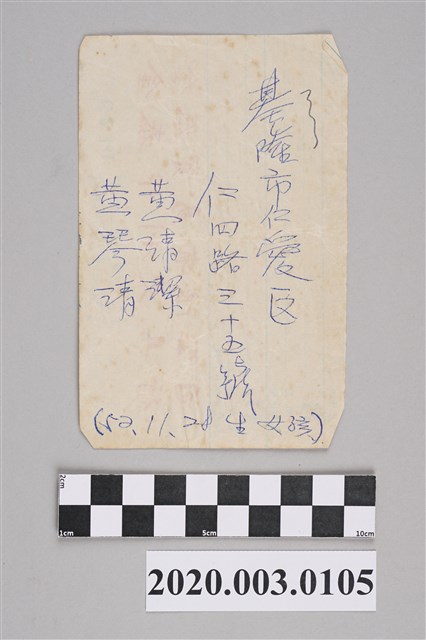 基隆市仁愛区
仁四路三十五號
黃靖潔
黃琴靖
(52.11.28生女孩)
2cm
1cm
5cm
10cm
2020.003.0105